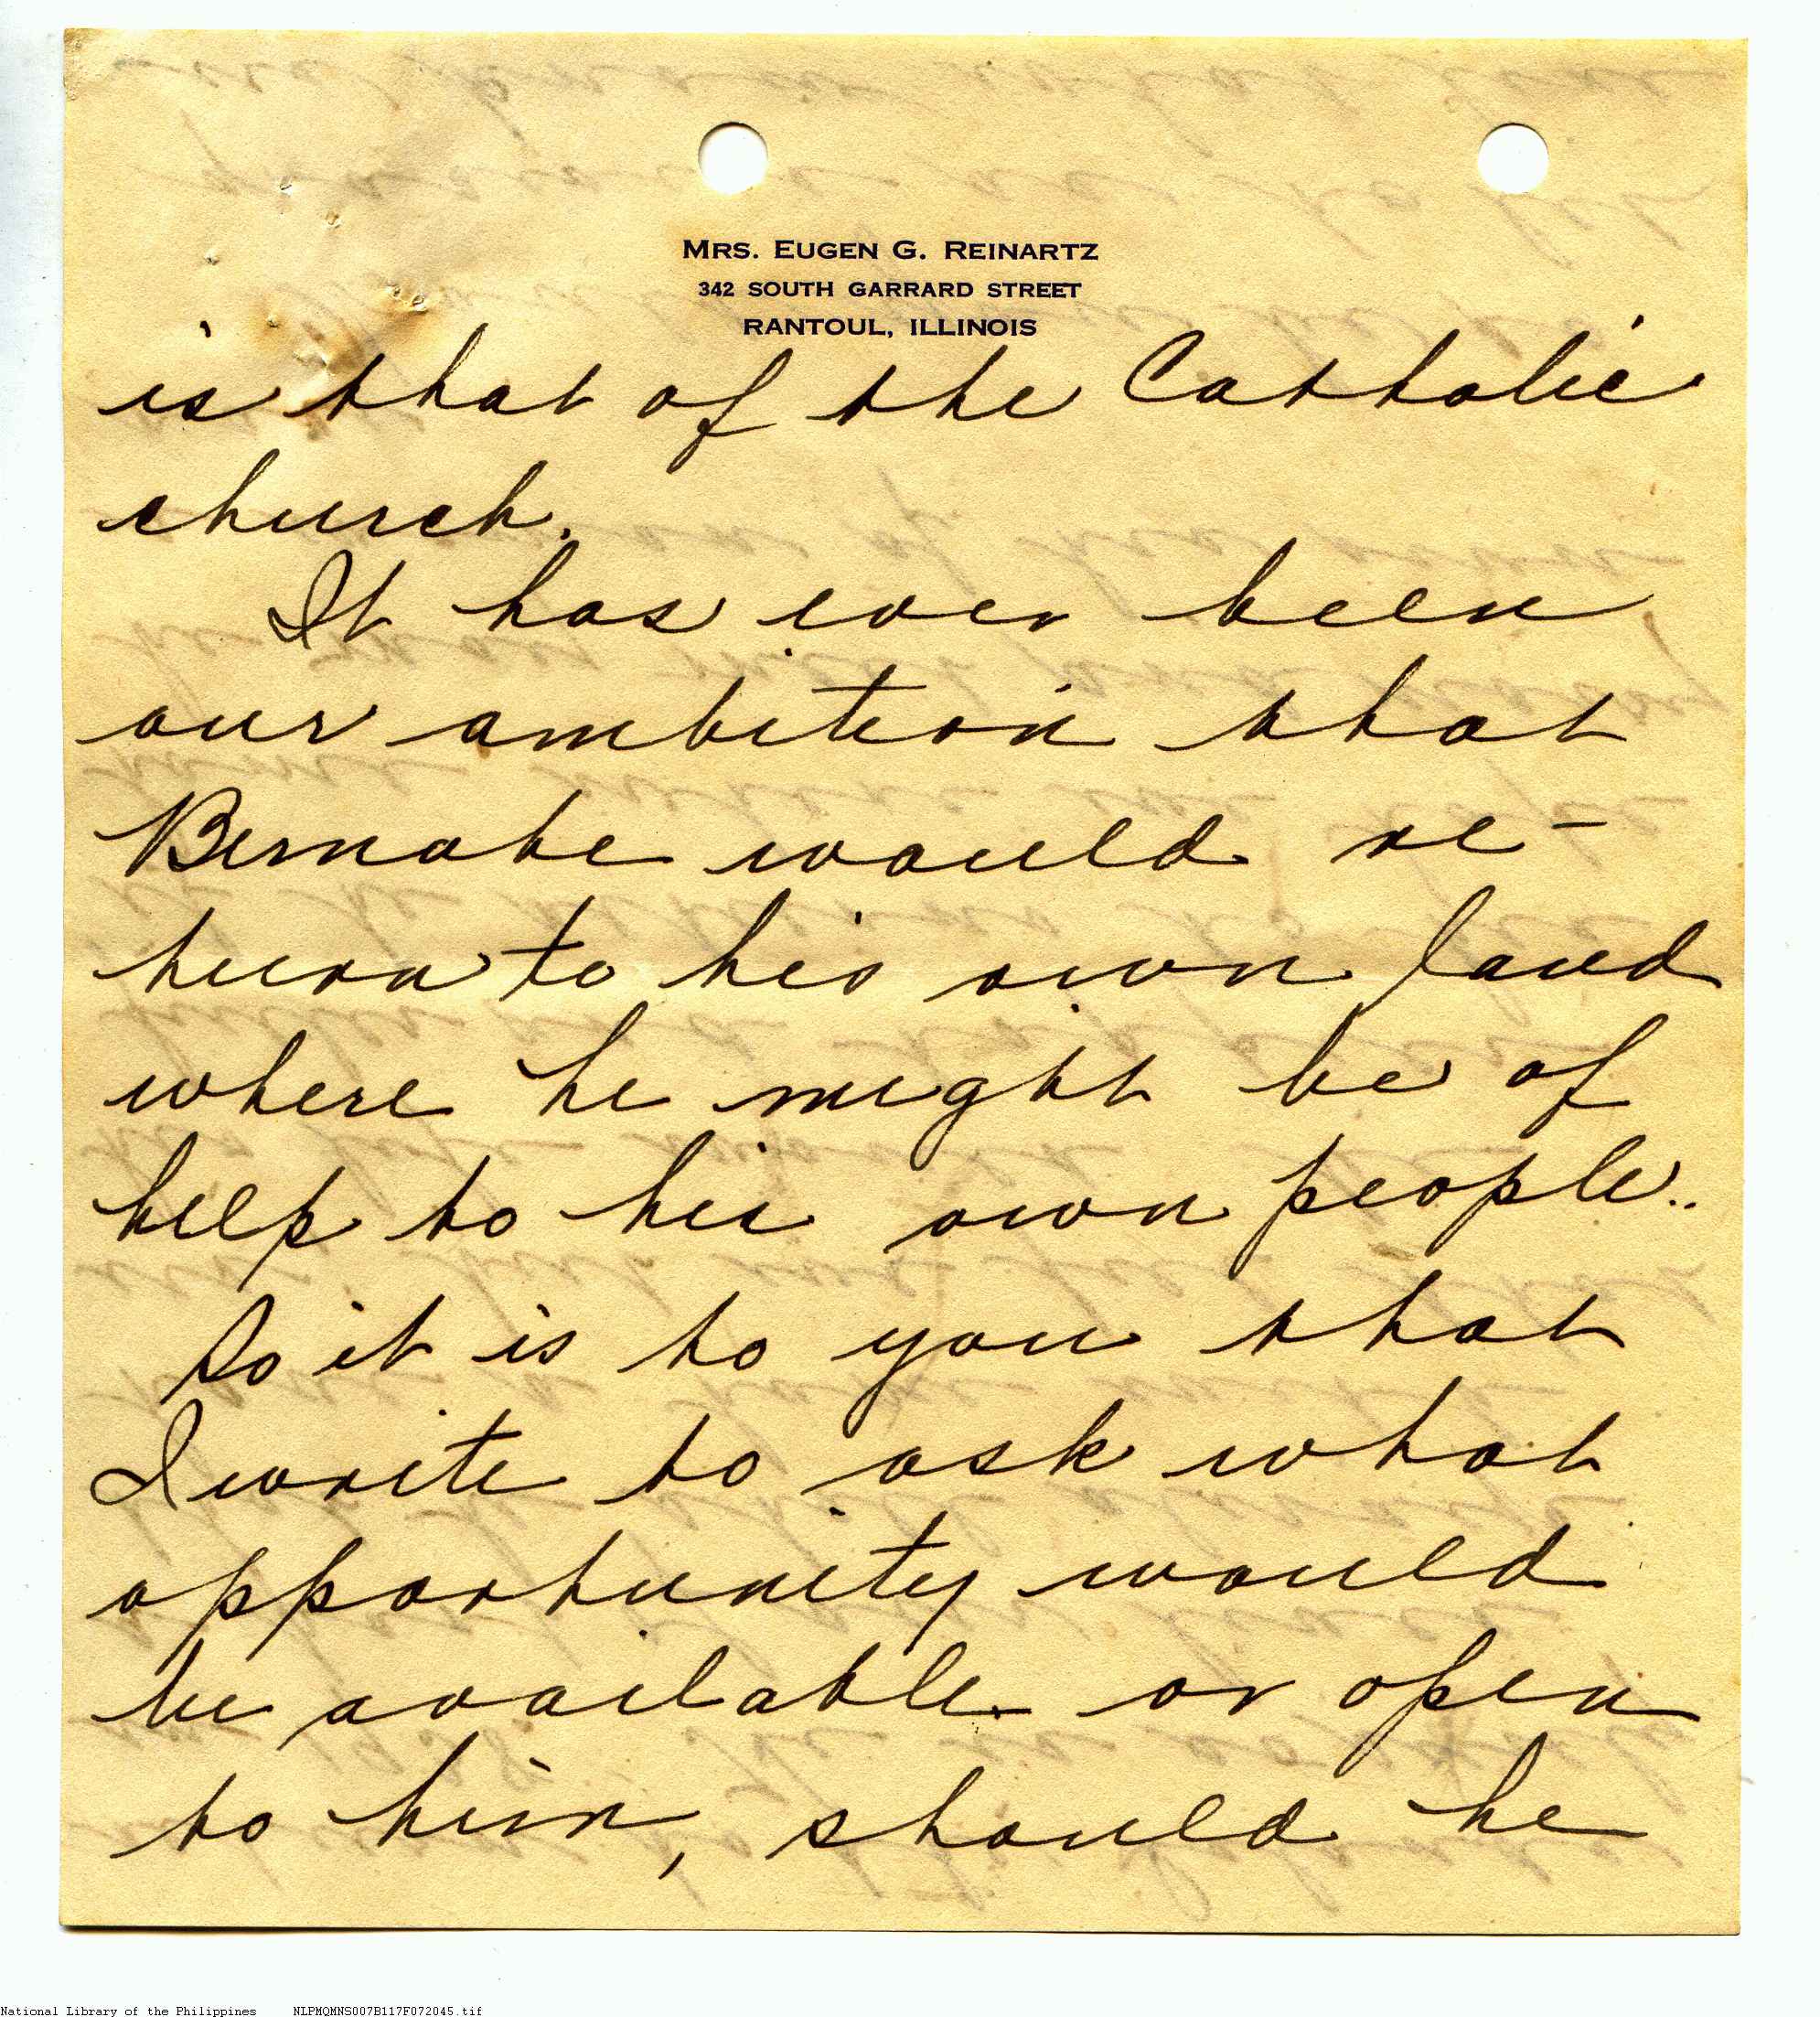 MRS. EUGEN G. REINARTZ
342 SOUTH GARRARD STREET
RANTOUL, ILLINOIS
is that of the Catholic
church.
It has ever been
our ambition that
Bernabe would re-
turn to his own land
where he might be of
help to his own people..
So it is to you that
I write to ask what
opportunity would
be available or open
to him, should he
National Library of the Philippines NLPMQMNS007B117F072045.tif